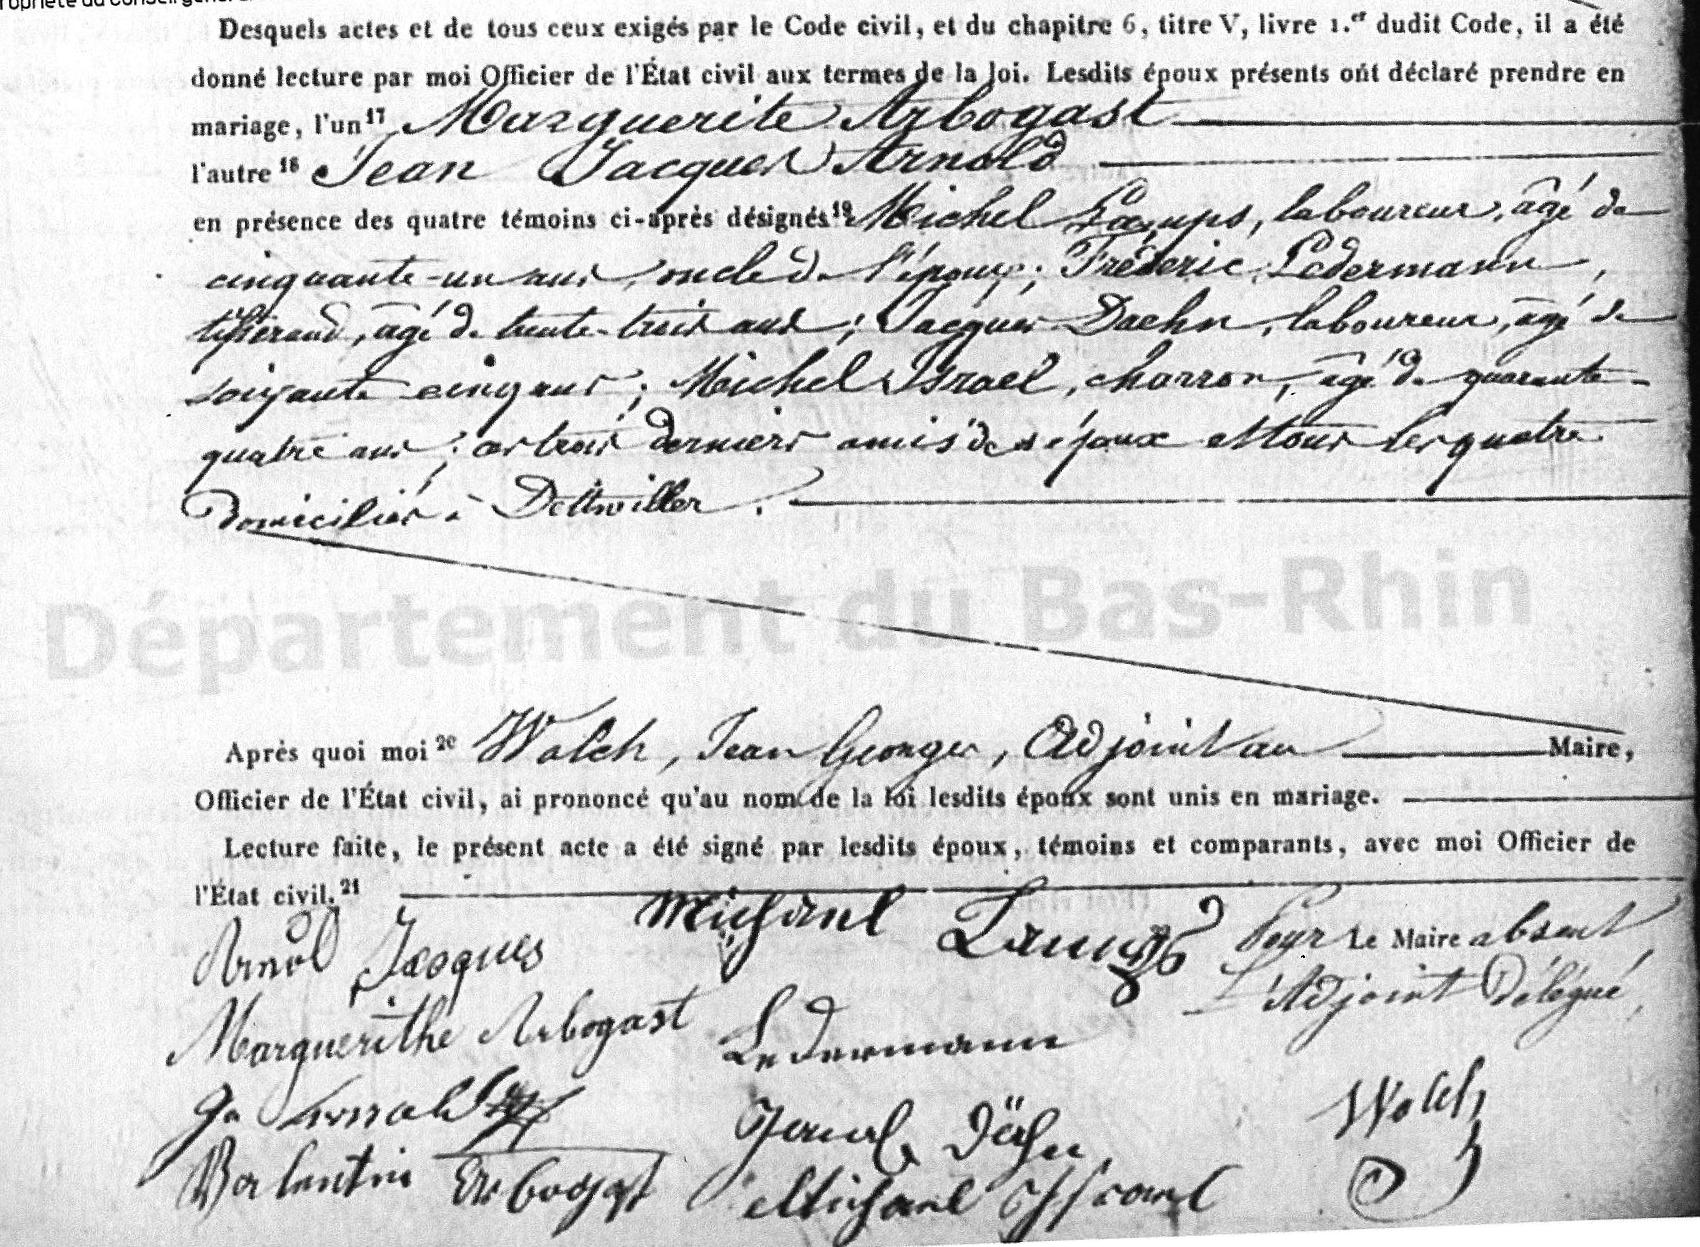 Desquels actes et de tous ceux exigés par le Code civil, et du chapitre 6, titre V, livre 1.er dudit Code, il a été
donné lecture par moi Officier de l'État civil aux termes de la loi. Lesdits époux présents ont déclaré prendre en
mariage, l'un 17 Marguerite Arbogast
l'autre 18 Jean Jacques Arnold
en présence des quatre témoins ci-après désignés 19 Michel , laboureur, âgé de
cinquante-un ans, oncle de ; Fréderic Ledermann,
tisserand, âgé de trente-trois ans; Jacques Daehn, laboureur, âgé de
soixante cinq ans; Michel Israel, charron, âgé de quarante-
quatre ans; ces trois derniers amis des époux et tous les quatre
domiciliés à Dettwiller.
Département du Bas-Rhin
Après quoi moi 20 Walch, Jean Georges, Adjoint au Maire,
Officier de l'État civil, ai prononcé qu'au nom de la loi lesdits époux sont unis en mariage.
Lecture faite, le présent acte a été signé par lesdits époux, témoins et comparants, avec moi Officier de
l'État civil. 21
Arnold Jacques Michael Pour Le Maire absent
L'Adjoint Délégué,
Marguerithe Arbogast Ledermann
Walch
Valentin Arbogast Michael Israel